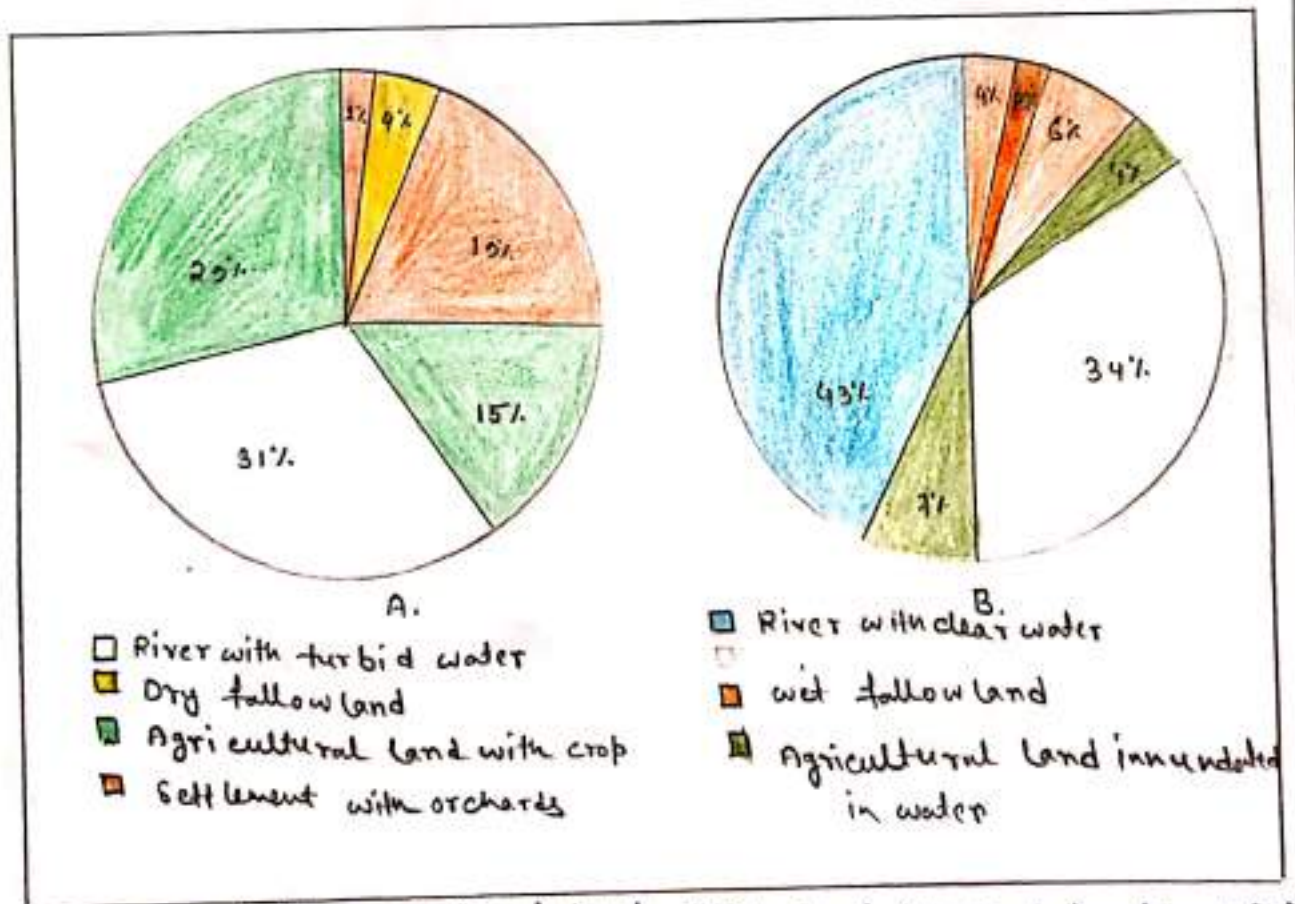 4%
15%
31%
A.
River with turbid water
Dry fallow land
Agricultural land with crop
Settlement with orchards
4%
6%
34%
43%
7%
B.
River with clear water
wet fallow land
Agricultural land innundated
in water